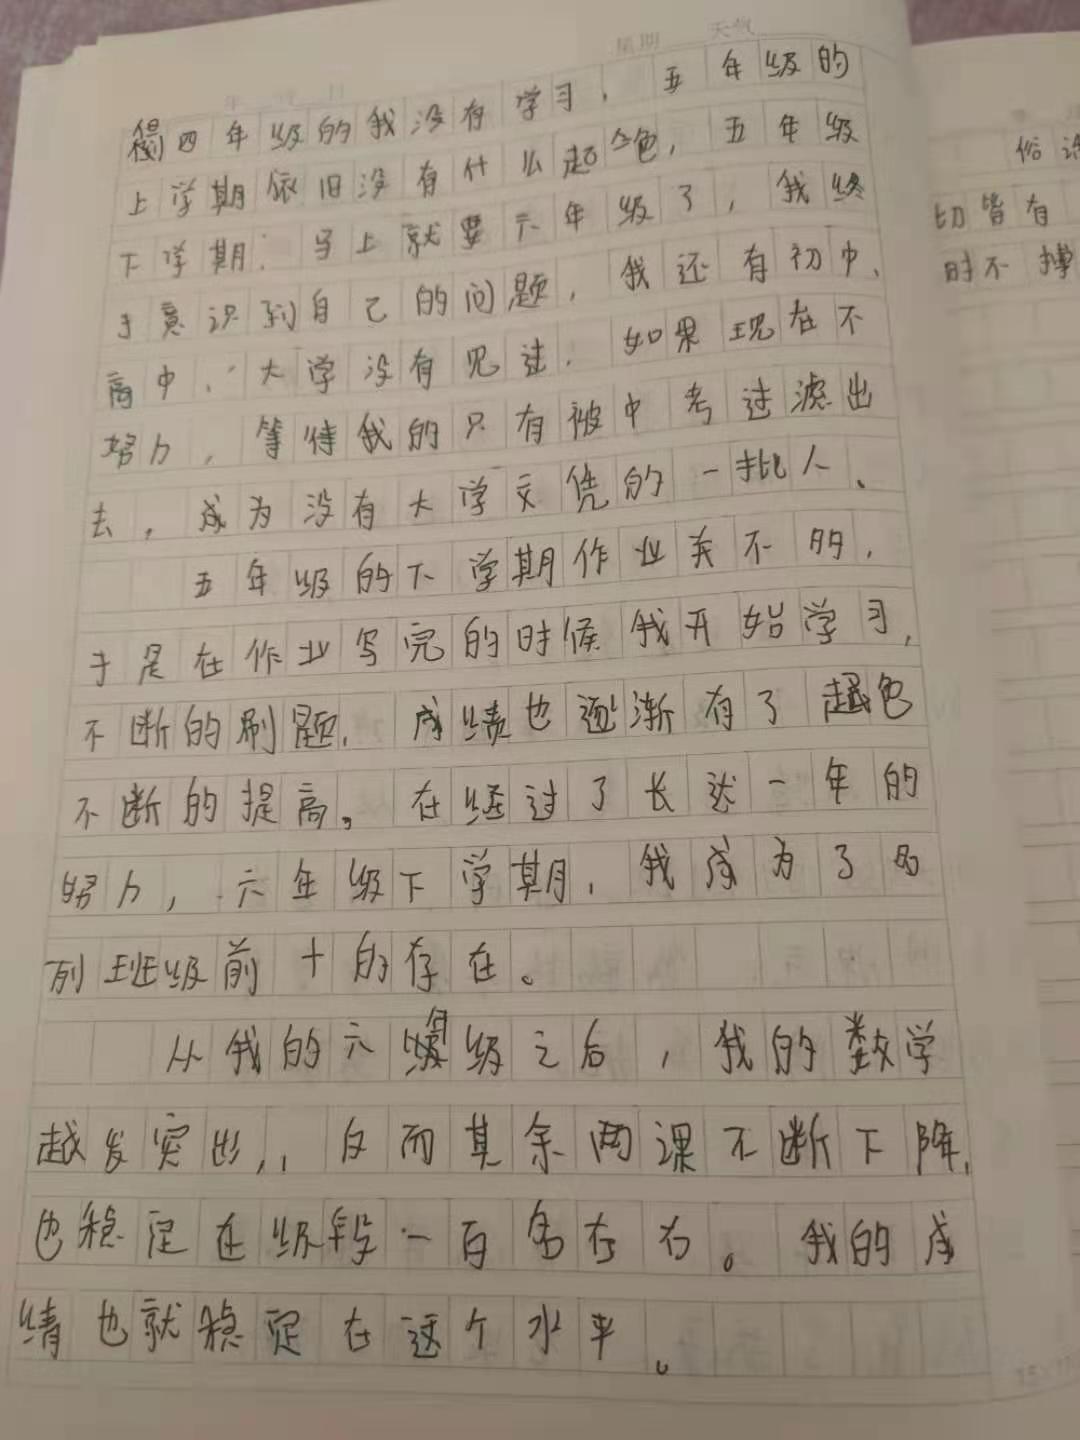 星期 天气
四年级的我没有学习，五年级的
上学期依旧没有什么起色，五年级
下学期：马上就要六年级了，我终
于意识到自己的问题，我还有初中、
高中、大学没有见过．如果现在不
努力，等待我的只有被中考过滤出
去，成为没有大学文凭的一批人、
五年级的下学期作业关不多，
于是在作业写完的时候我开始学习，
不断的刷题．成绩也逐渐有了起色
不断的提高。在经过了长达一年的
努力，六年级下学期，我成为了名
列班级前十的存在。
从我的六年级之后，我的数学
越发突出，反而其余两课不断下降，
也稳定在级段一百名左右。我的成
绩也就稳定在这个水平。
俗话
切皆有
时不搏